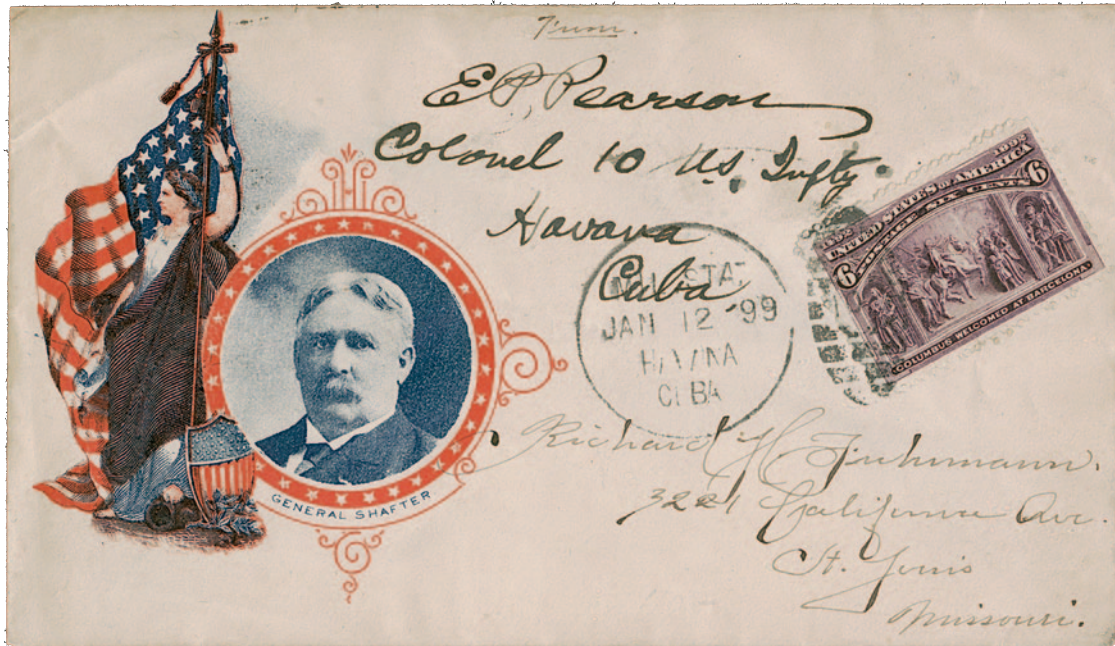 From.
E P Pearson
Colonel 10 U.S. Infty.
Havana
Cuba
MIL. STA.
JAN 12 '99
HAVANA
CUBA
1492 UNITED STATES OF AMERICA 1892
6 POSTAGE SIX CENTS 6
COLUMBUS WELCOMED AT BARCELONA.
GENERAL SHAFTER
Richard H. Fuhrmann.
3221 California Ave.
St. Louis
Missouri.